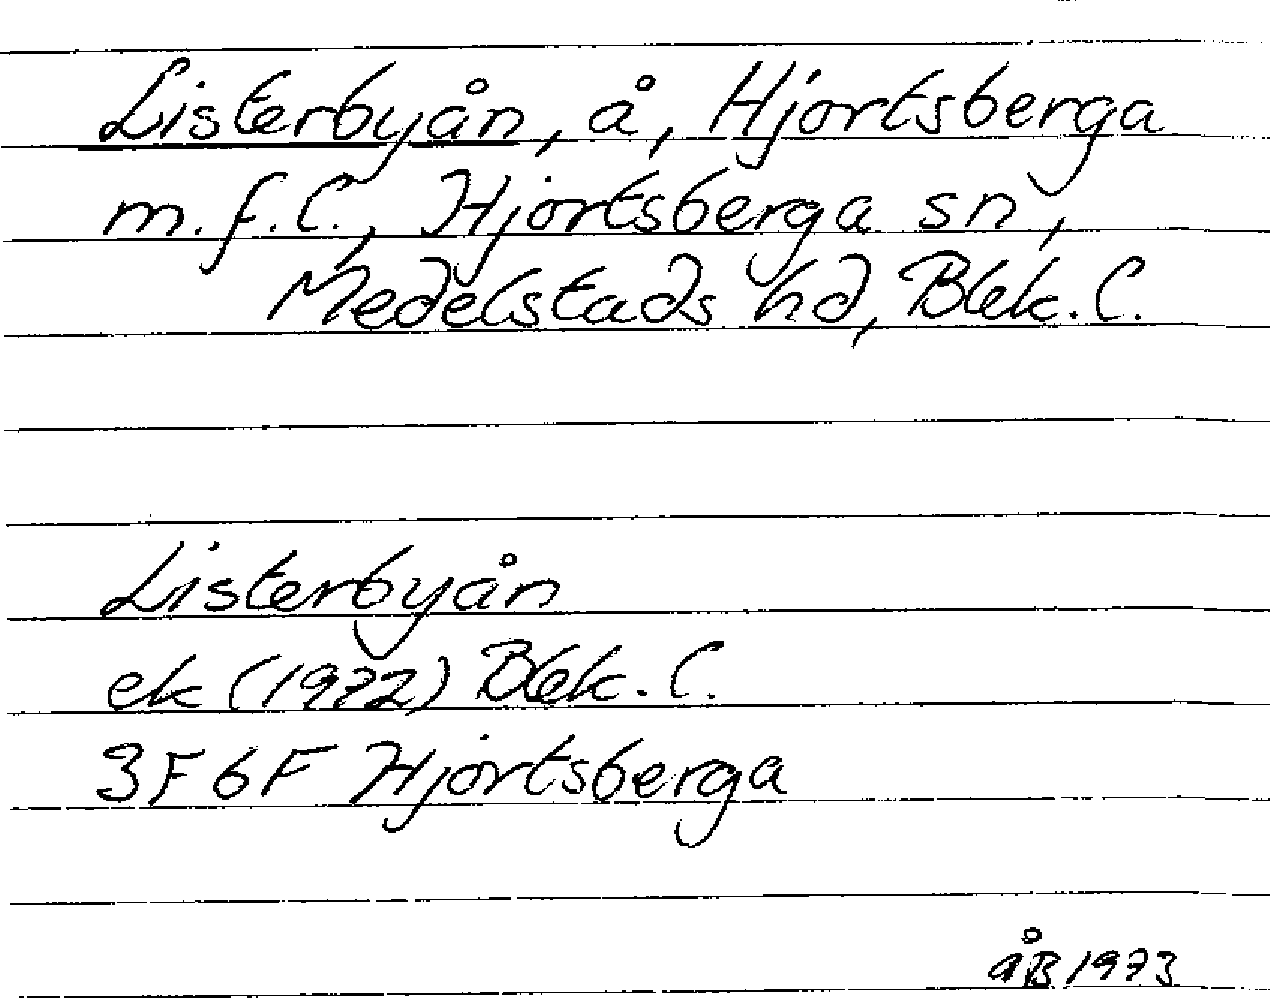 Listerbyån, å, Hjortsberga
m.f.l., Hjortsberga sn,
Medelstads hd, Blek. l.
Listerbyån
ek (1972) Blek. l.
3F6F Hjortsberga
åB 1973